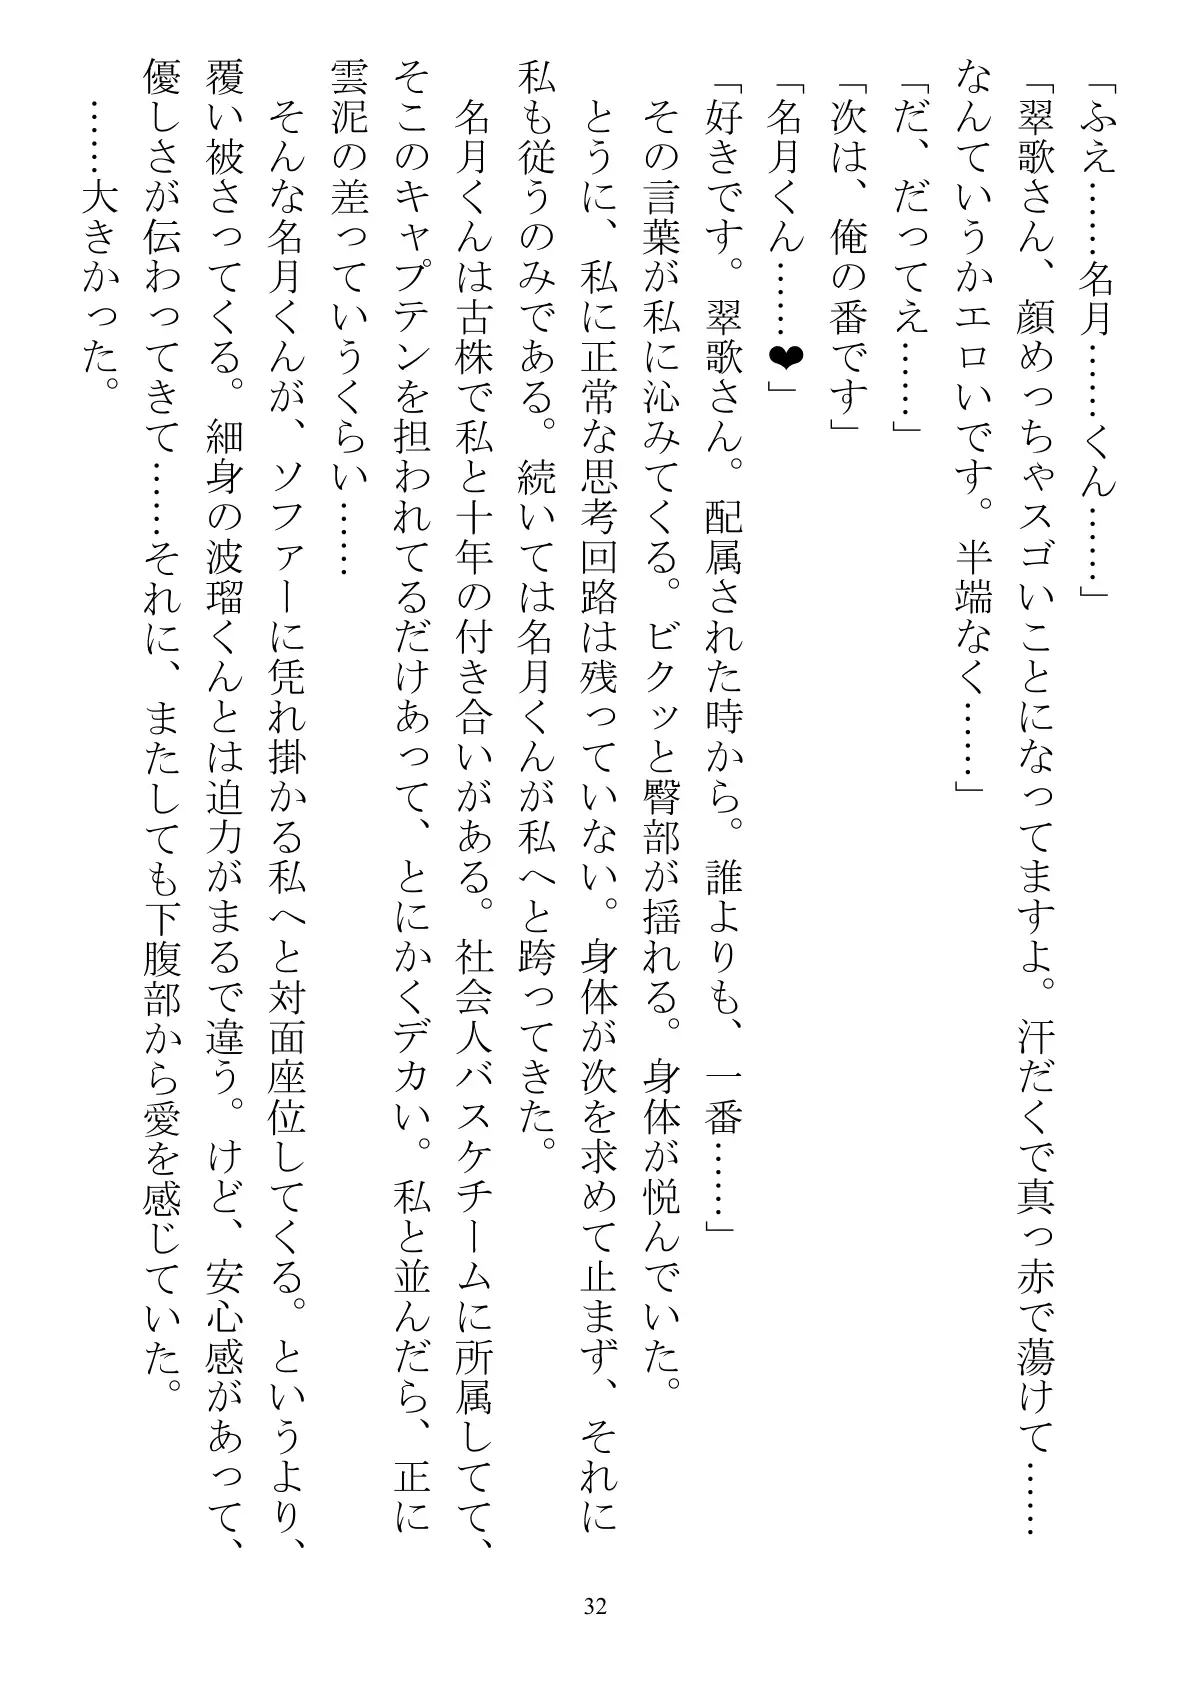 「ふえ……名月……くん……」
「翠歌さん、顔めっちゃスゴいことになってますよ。汗だくで真っ赤で蕩けて……
なんていうかエロいです。半端なく……」
「だ、だってえ……」
「次は、俺の番です」
「名月くん……❤」
「好きです。翠歌さん。配属された時から。誰よりも、一番……」
その言葉が私に沁みてくる。ビクッと臀部が揺れる。身体が悦んでいた。
とうに、私に正常な思考回路は残っていない。身体が次を求めて止まず、それに
私も従うのみである。続いては名月くんが私へと跨ってきた。
名月くんは古株で私と十年の付き合いがある。社会人バスケチームに所属してて、
そこのキャプテンを担われてるだけあって、とにかくデカい。私と並んだら、正に
雲泥の差っていうくらい……
そんな名月くんが、ソファーに凭れ掛かる私へと対面座位してくる。というより、
覆い被さってくる。細身の波瑠くんとは迫力がまるで違う。けど、安心感があって、
優しさが伝わってきて……それに、またしても下腹部から愛を感じていた。
……大きかった。
32